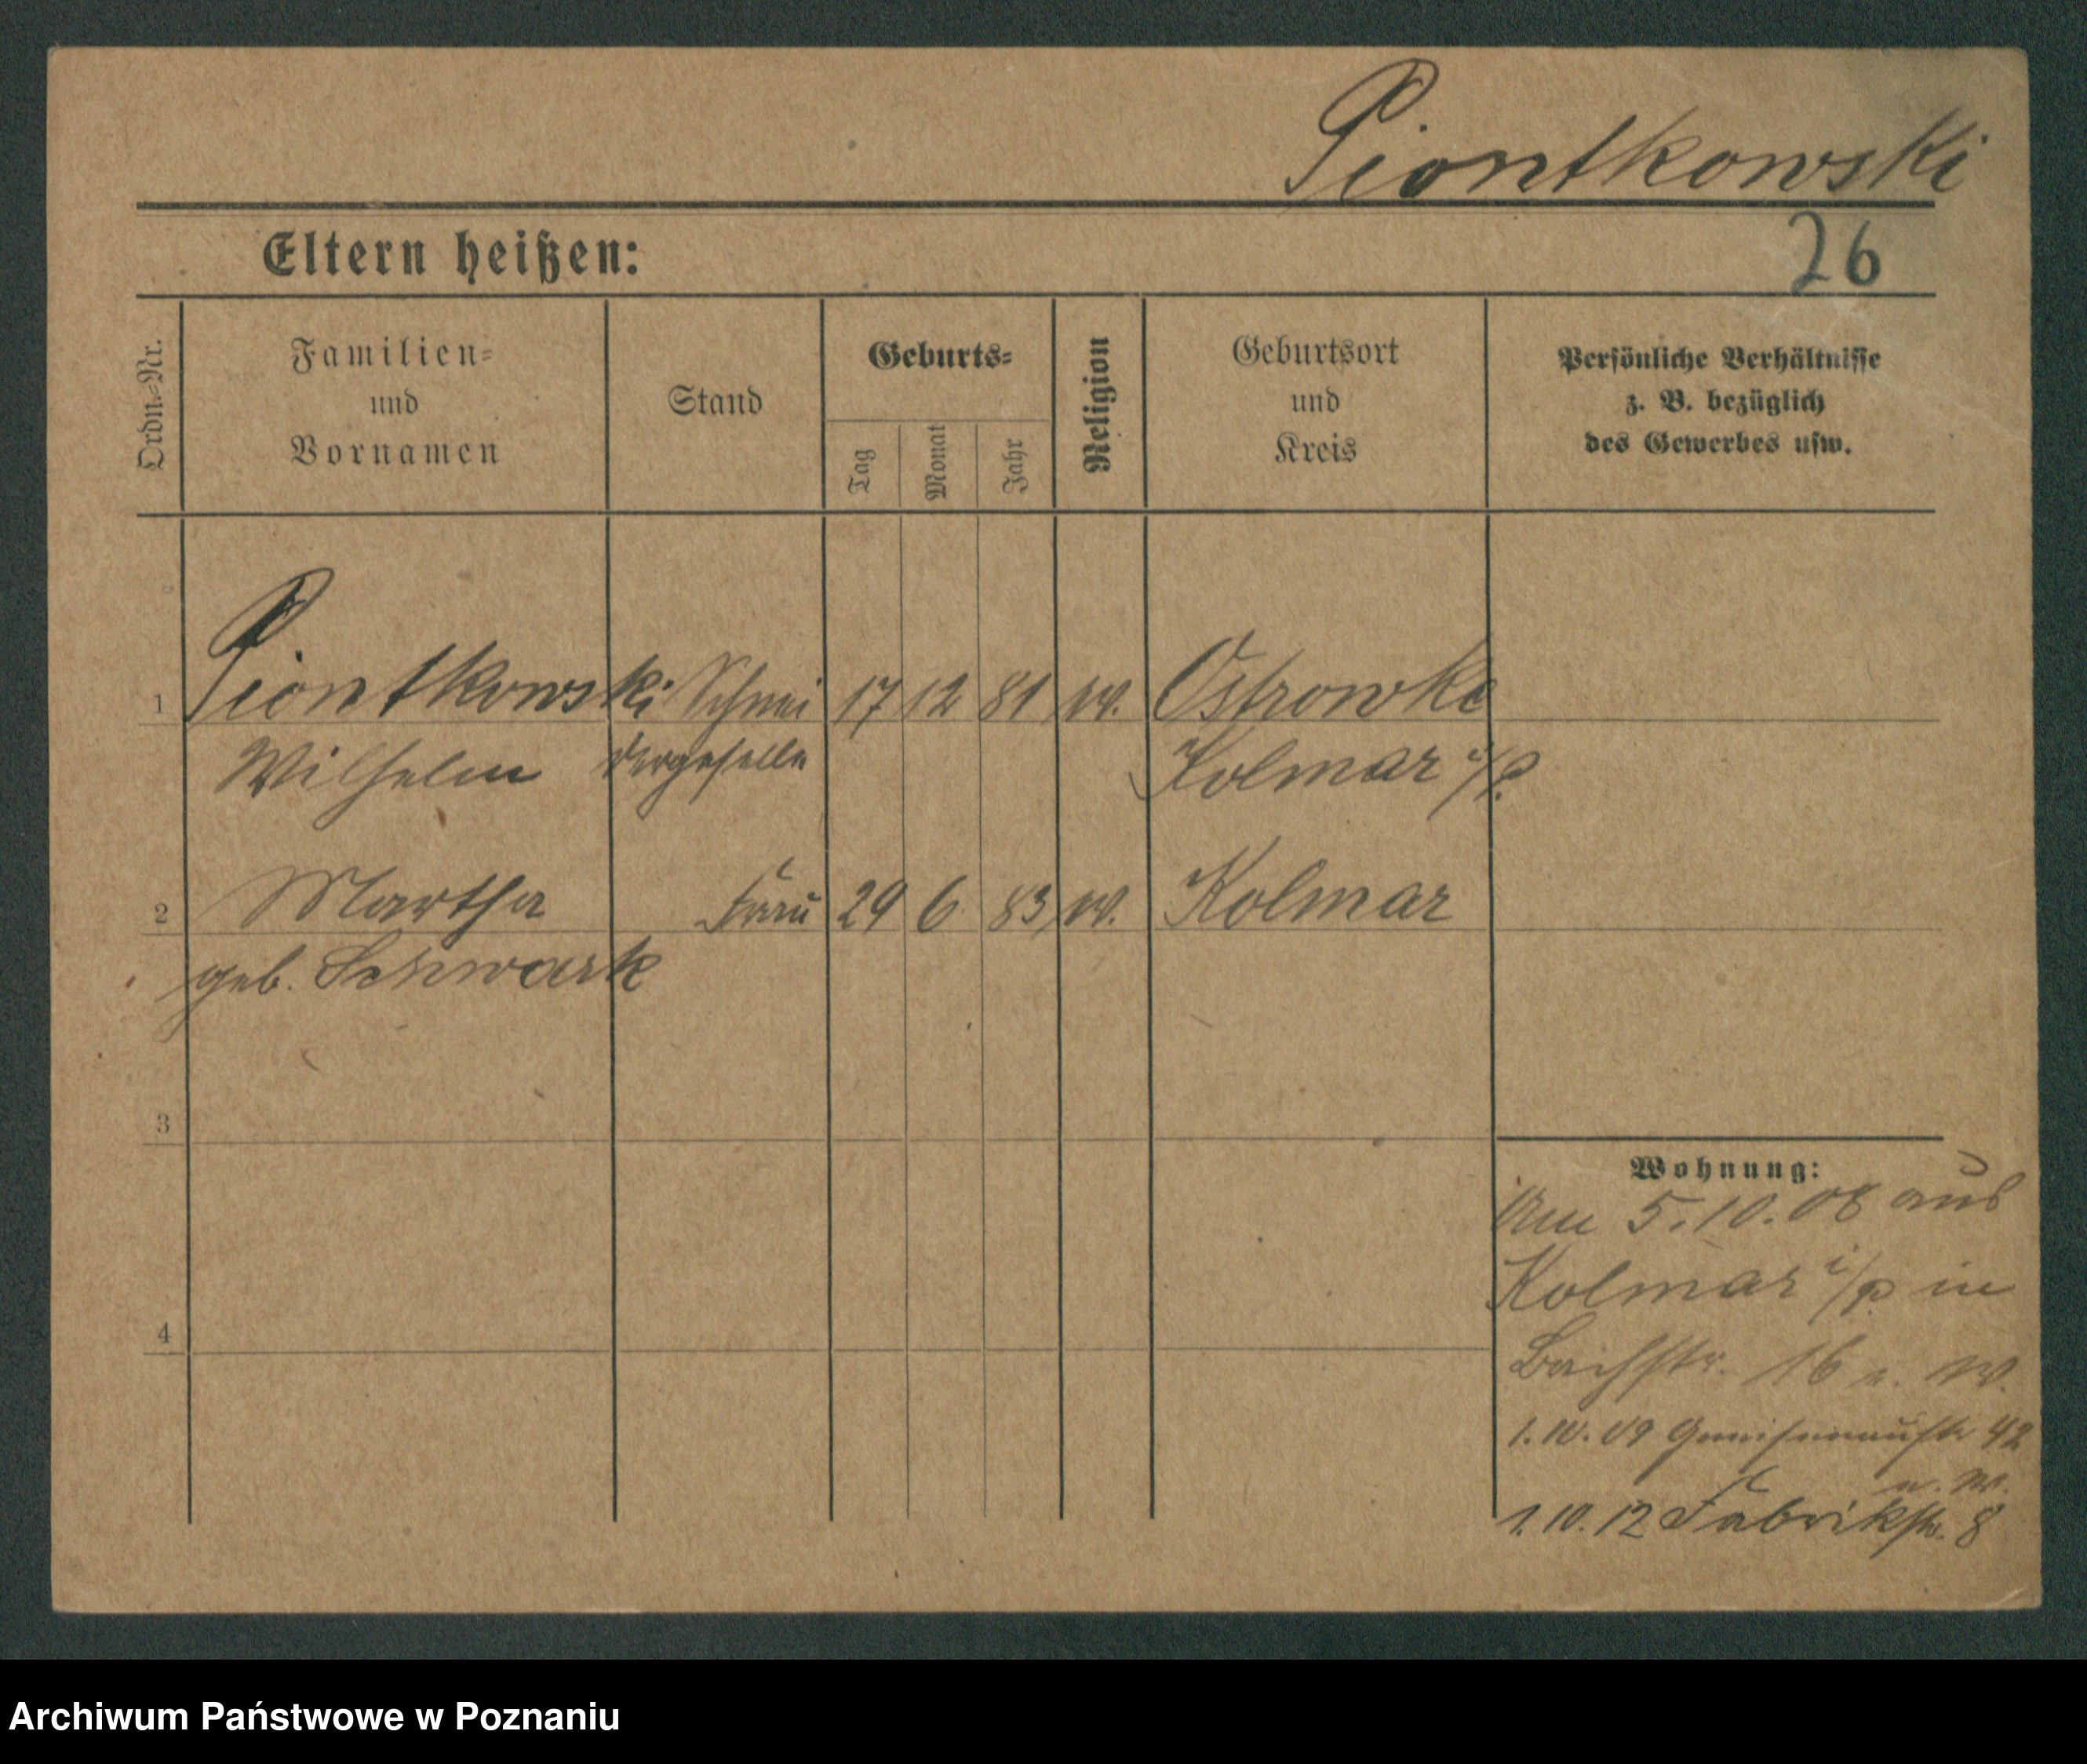 Piontkowski
Eltern heißen:
26
Ordn.-Nr.
Familien-
und
Vornamen
Stand
Geburts-
Tag
Monat
Jahr
Religion
Geburtsort
und
Kreis
Persönliche Verhältnisse
z. B. bezüglich
des Gewerbes usw.
1 Piontkowski Schnei 17 12 81 ev. Ostrowke
Wilhelm dergeselle Kolmar i/P.
2 Martha Frau 29 6 83 ev. Kolmar
geb. Schwark
3
4
Wohnung:
Am 5.10.08 aus
Kolmar i/P in
Bachstr. 16 e. W.
1.10.09 Gneisenaustr 42
e. W.
1.10.12 Fabrikstr. 8
Archiwum Państwowe w Poznaniu